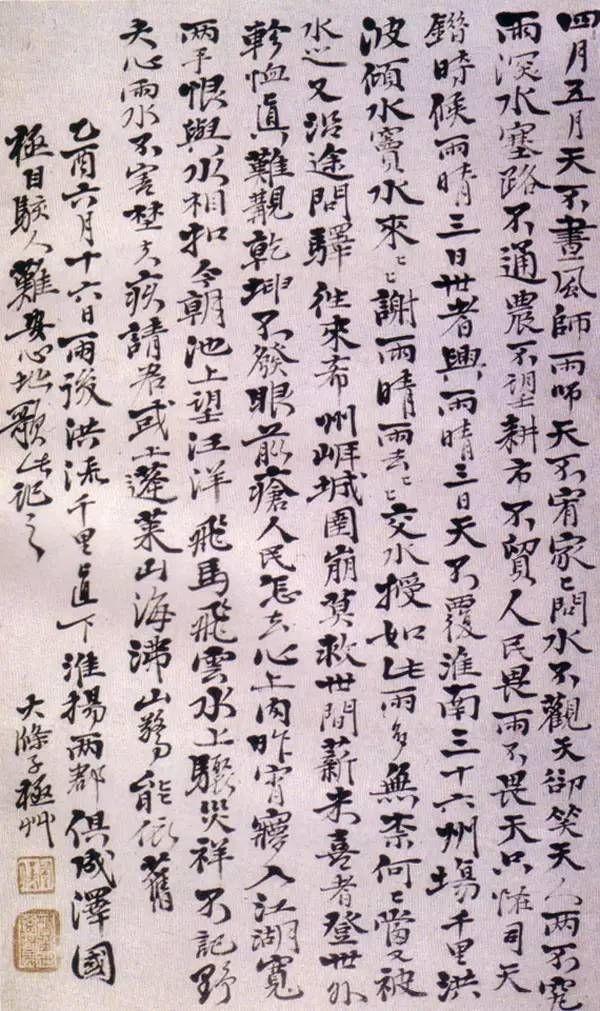 四月五月天不晝風師雨師天不宥家〻問水不觀天卻笑天人兩不究
雨深水塞路不通農不望耕市不貿人民畏雨不畏天只惟司天
錯時候雨晴三日世者興雨晴三日天不覆淮南三十六州塲千里洪
波傾水竇水來〻謝雨晴雨去〻交水授如此雨多無柰何〻當又被
水也又沿途問驛往來希州崕城圍崩莫救世間薪未喜者登世外
軫恤真難覯乾坤不發眼前瘡人民怎去心上肉昨宵寢入江湖寬
兩手恨與水相扣今朝池上望汪洋飛馬飛雲水上驟災祥不記野
夫心雨水不害埜夫疾請君或上蓬萊山海沸山勢能依舊
乙酉六月十六日雨後洪流千里直下淮揚兩郡俱成澤國
極目駭人難安心地歌此記之
大滌子極艸